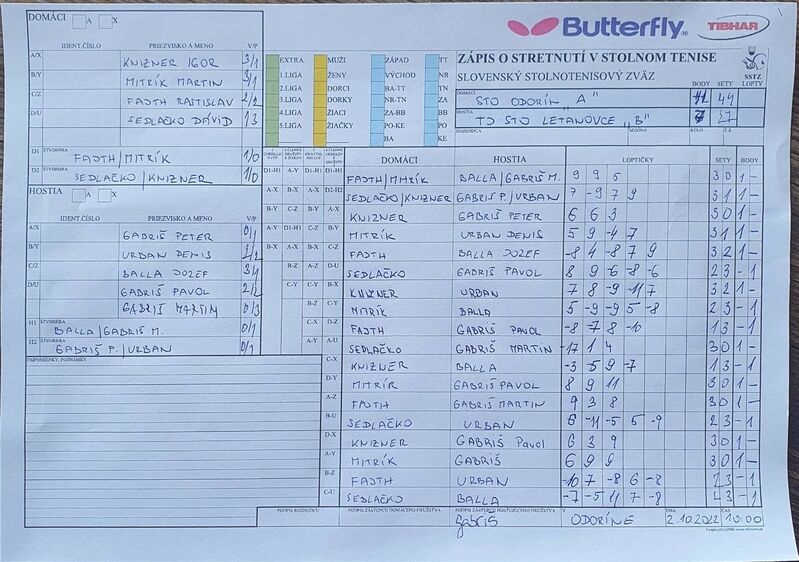 DOMÁCI A X
IDENT.ČÍSLO PRIEZVISKO A MENO V/P
A/X KNIZNER IGOR 3/1
B/Y MITRÍK MARTIN 3/1
C/Z FAJTH RASTISLAV 2/2
D/U SEDLAČKO DÁVID 1/3
D1 ŠTVORHRA FAJTH/MITRÍK 1/0
D2 ŠTVORHRA SEDLAČKO/KNIZNER 1/0
HOSTIA A X
IDENT.ČÍSLO PRIEZVISKO A MENO V/P
A/X GABRIŠ PETER 0/1
B/Y URBAN DENIS
C/Z BALLA JOZEF
D/U GABRIŠ PAVOL 2/2
GABRIŠ MARTIN 0/3
H1 ŠTVORHRA BALLA/GABRIŠ M. 0/1
H2 ŠTVORHRA GABRIŠ P./URBAN 0/1
PRIPOMIENKY, POZNÁMKY
EXTRA MUŽI ZÁPAD TT
1.LIGA ŽENY VÝCHOD NR
2.LIGA DORCI BA-TT TN
3.LIGA DORKY NR-TN ZA
4.LIGA ŽIACI ZA-BB BB
5.LIGA ŽIAČKY PO-KE PO
BA KE
Butterfly TIBHAR
ZÁPIS O STRETNUTÍ V STOLNOM TENISE
SLOVENSKÝ STOLNOTENISOVÝ ZVÄZ SSTZ
BODY SETY LOPTY
DOMÁCI STO ODORÍN „A" 11 44
HOSTIA TJ STO LETANOVCE „B" 7 27
ROZHODCA SEZÓNA KOLO Č.Z.
DOMÁCI HOSTIA LOPTIČKY SETY BODY
D1-H1 A-X D1-H1 FAJTH/MITRÍK BALLA/GABRIŠ M. 9 9 5 3 0 1 –
A-X B-Y A-X D2-H2 SEDLAČKO/KNIZNER GABRIŠ P./URBAN 7 -9 7 9 3 1 1 –
B-Y C-Z B-Y A-X KNIZNER GABRIŠ PETER 6 6 3 3 0 1 –
A-Y D1-H1 C-Z B-Y MITRÍK URBAN DENIS 5 9 -4 7 3 1 1 –
B-X A-X B-X C-Z FAJTH BALLA JOZEF -8 4 -8 7 9 3 2 1 –
B-Z A-Z D-U SEDLAČKO GABRIŠ PAVOL 8 9 -6 -8 -6 2 3 – 1
C-Y C-Y B-X KNIZNER URBAN 7 8 -9 -11 7 3 2 1 –
B-Z C-Y MITRÍK BALLA 5 -9 -9 5 -8 2 3 – 1
C-X D-Z FAJTH GABRIŠ PAVOL -8 7 -8 -10 1 3 – 1
A-Y A-U SEDLAČKO GABRIŠ MARTIN 17 1 4 3 0 1 –
C-X KNIZNER BALLA -3 -5 9 -7 1 3 – 1
D-Y MITRÍK GABRIŠ PAVOL 8 9 11 3 0 1 –
A-Z FAJTH GABRIŠ MARTIN 9 3 8 3 0 1 –
B-U SEDLAČKO URBAN 6 -11 -5 5 -9 2 3 – 1
D-X KNIZNER GABRIŠ Pavol 6 3 9 3 0 1 –
A-Y MITRÍK GABRIŠ 6 9 9 3 0 1 –
B-Z FAJTH URBAN -10 7 -8 6 -8 2 3 – 1
C-U SEDLAČKO BALLA -7 -5 11 7 -8 2 3 – 1
PODPIS ROZHODCU PODPIS ZÁSTUPCU DOMÁCEHO DRUŽSTVA PODPIS ZÁSTUPCU HOSŤUJÚCEHO DRUŽSTVA V DŇA ČAS
Gabriš ODORÍNE 2.10.2022 10:00